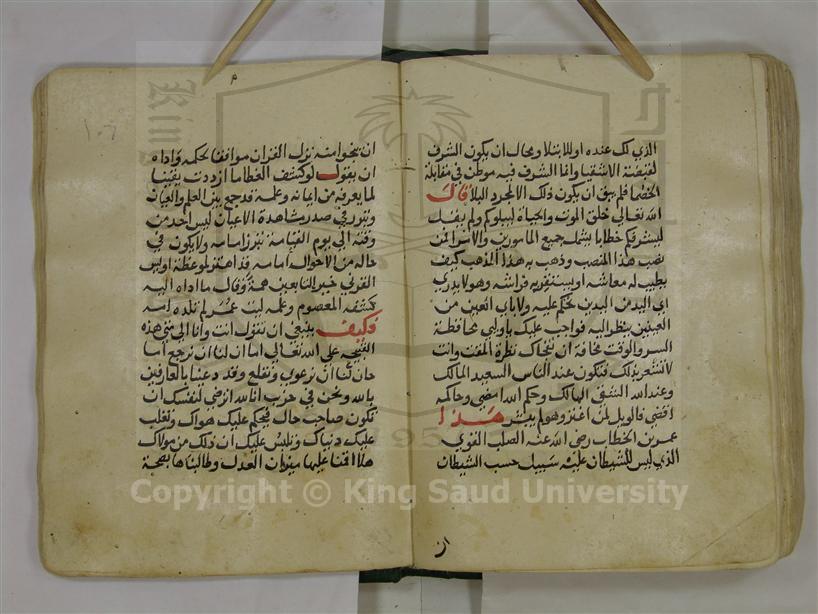 الذي لك عنده اولا ابتلا ومحال ان يكون الشرف
لقبضة الاشقيا وانما الشرف فيه موطن في مقابلة
الخصما فلم يبق ان يكون ذلك الا لمجرد البلا قال
الله تعالى خلق الموت والحياة ليبلوكم ولم يقل
ليشرفكم خطابا يشمل جميع المامورين والاسرا فمن
نصب هذا المنصب وذهب به هذا المذهب كيف
يطيب له معاشه او يستقر به فراشه وهو لا يدري
اي اليد من اليدين يحكم عليه ولا باي العين من
العينين ينظر اليه فواجب عليك يا وليي محافظة
السر والوقت مخافة ان تفجاك نظرة المقت وانت
لا تشعر بذلك فتكون عند الناس السعيد المالك
وعند الله الشقي الهالك وحكم الله امضى وحاكمه
اقضى فالويل لمن اغتر وهو لم يبشر هذا
عمر بن الخطاب رضي الله عنه الصلب القوي
الذي ليس للشيطان عليه سبيل حسب الشيطان
ان
ان ينجو منه نزل القران موافقا لحكمه واداه
ان يقول لو كشف الغطا ما ازددت يقينا
لما يعرفه من ايمانه وعلمه قد جمع بين العلم والعيان
وتقرر في صدر مشاهدة الاعيان ليس احد من
وقته الى يوم القيامة تبرز اسامه ولا يكون في
حالة من الاحوال امامه قد اهتز لموعظة اويس
القرني خير التابعين همة وقال ما اداه اليه
كشفه المعصوم وعلمه ليت عمر لم تلده امه
فكيف ينبغي ان نقول انت وانا الى متى هذه
القبحة على الله تعالى اما ان لنا ان نرجع اما
حان لنا ان نرعوي ونقلع وقد دعينا بالعارفين
بالله ونحن في حزب انا الله ارضى لنفسك ان
تكون صاحب حال فيحكم عليك هواك وتغلب
عليك دنياك ويلبس عليك ان ذلك من مولاك
هلا اقمنا عليها ميزان العدل وطالبناها بصحة
Copyright © King Saud University